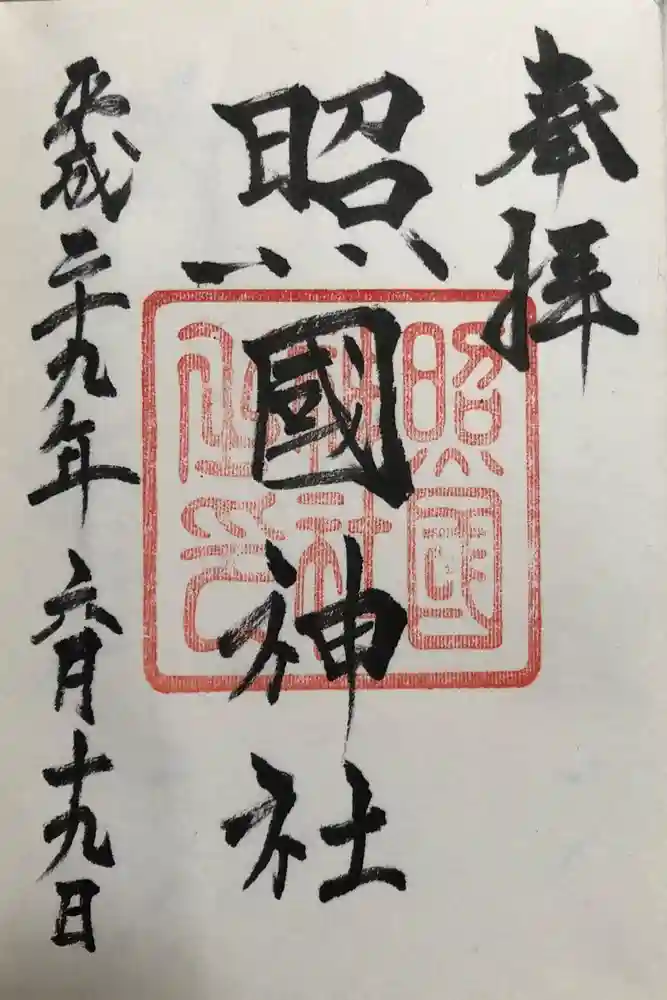 奉拝
照國神社
平成二十九年六月十九日
照國
神社